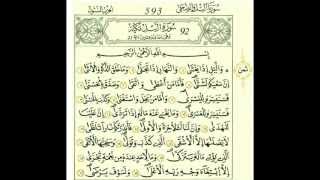 593
سُورَةُ الَّيْلِ مَكِّيَّة 92
بِسْمِ اللَّهِ الرَّحْمَنِ الرَّحِيمِ
ثمن وَالَّيْلِ إِذَا يَغْشَى وَالنَّهَارِ إِذَا تَجَلَّى وَمَا خَلَقَ الذَّكَرَ وَالْأُنثَى
إِنَّ سَعْيَكُمْ لَشَتَّى فَأَمَّا مَنْ أَعْطَى وَاتَّقَى وَصَدَّقَ بِالْحُسْنَى
فَسَنُيَسِّرُهُ لِلْيُسْرَى وَأَمَّا مَن بَخِلَ وَاسْتَغْنَى وَكَذَّبَ بِالْحُسْنَى
فَسَنُيَسِّرُهُ لِلْعُسْرَى وَمَا يُغْنِي عَنْهُ مَالُهُ إِذَا تَرَدَّى إِنَّ عَلَيْنَا
لَلْهُدَى وَإِنَّ لَنَا لَلْآخِرَةَ وَالْأُولَى فَأَنذَرْتُكُمْ نَارًا تَلَظَّى
لَا يَصْلَاهَا إِلَّا الْأَشْقَى الَّذِي كَذَّبَ وَتَوَلَّى وَسَيُجَنَّبُهَا الْأَتْقَى
الَّذِي يُؤْتِي مَالَهُ يَتَزَكَّى وَمَا لِأَحَدٍ عِندَهُ مِن نِّعْمَةٍ تُجْزَى
إِلَّا ابْتِغَاءَ وَجْهِ رَبِّهِ الْأَعْلَى وَلَسَوْفَ يَرْضَى